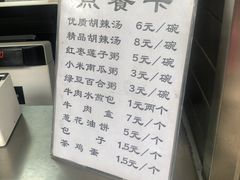 优质胡辣汤 6元/碗
精品胡辣汤 8元/碗
红枣莲子粥 5元/碗
小米南瓜粥 3元/碗
绿豆百合粥 3元/碗
牛肉水煎包 1元两个
牛肉盒 7元/个
葱花油饼 5元/个
包子 1.5元/个
茶鸡蛋 1.5元/个